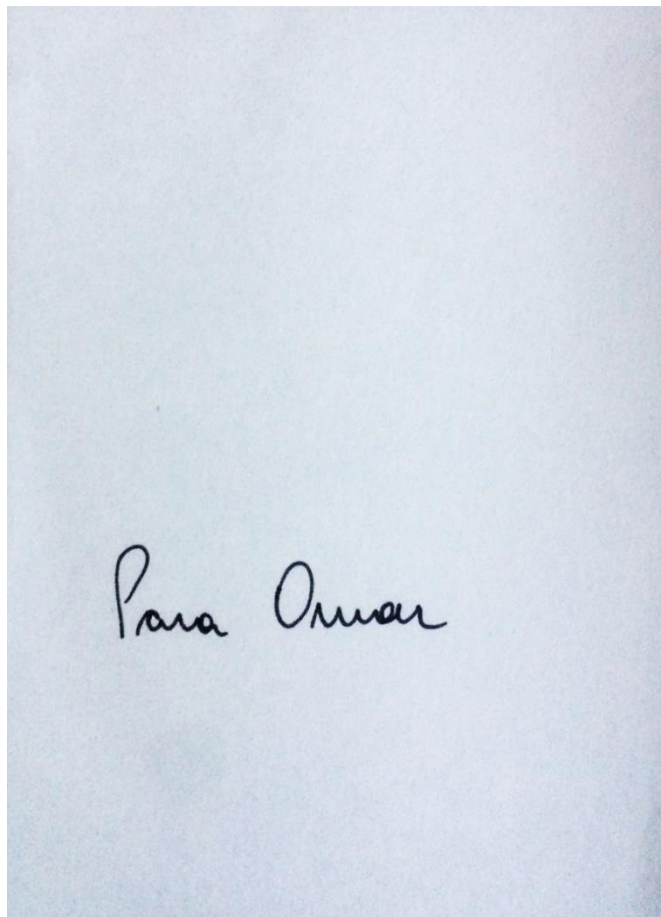 Para Omar